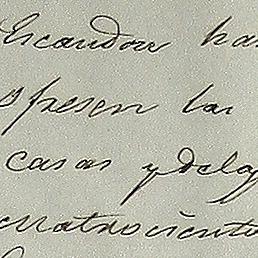 Escandon ha
presen las
casas y dela
cuatrocient